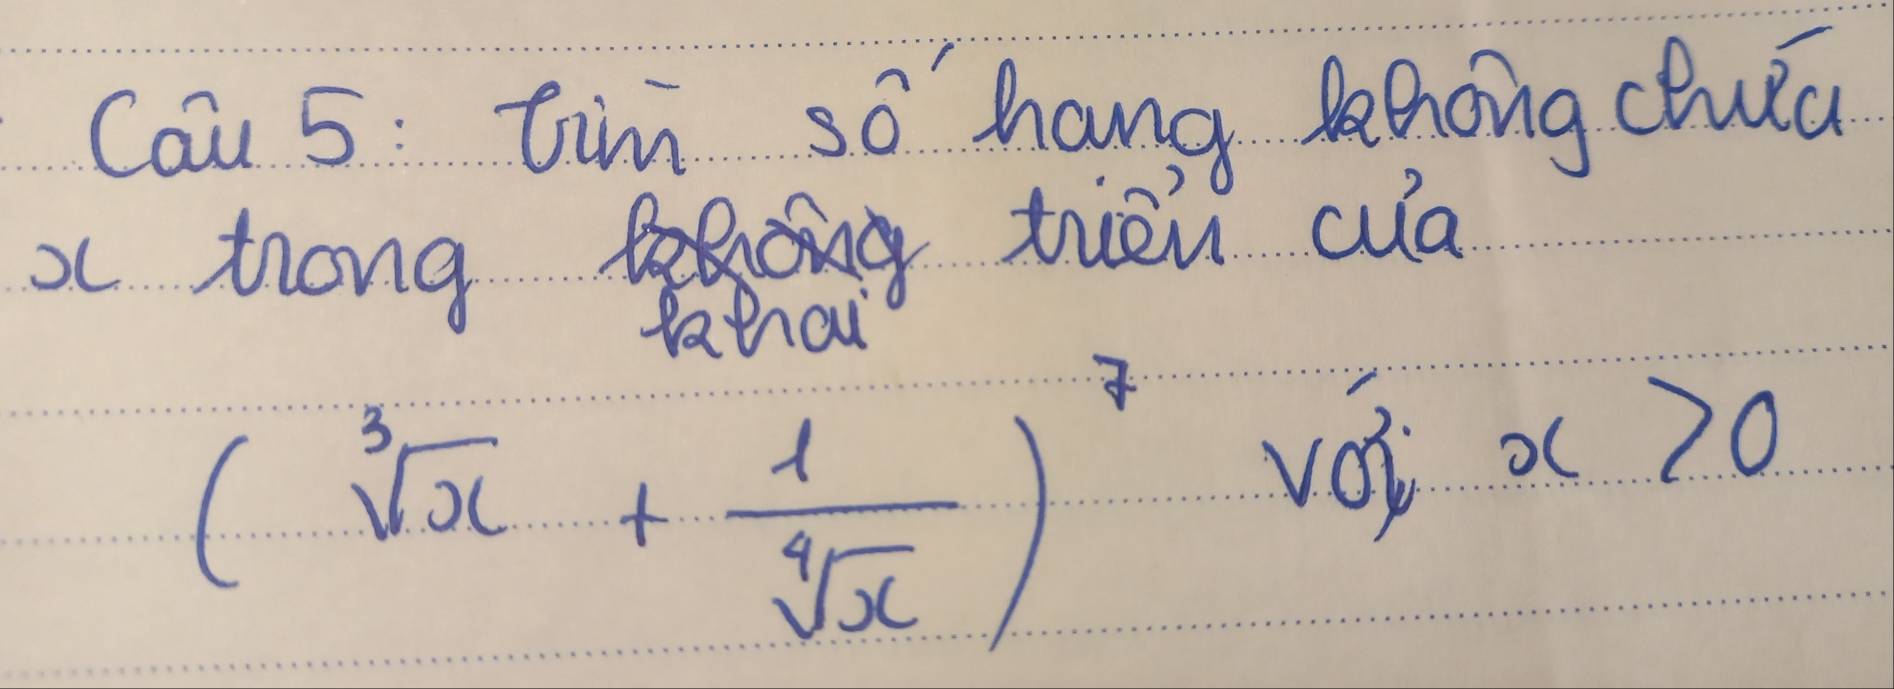 Câu 5: Tìm số hạng không chứa
x trong khai triển của
( ∛x + 1/∜x )⁷ với x > 0